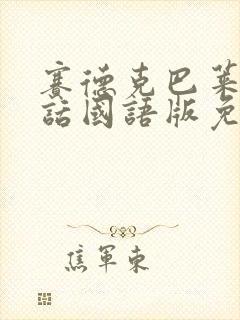 賽德克巴萊
話國語版免
焦軍東